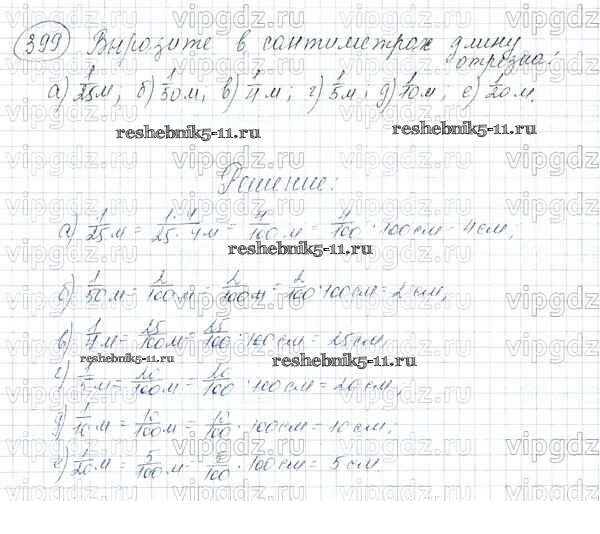 399 Выразите в сантиметрах длину
отрезка:
а) 1/25 м; б) 1/50 м; в) 1/4 м; г) 1/5 м; д) 1/10 м; е) 1/20 м.
reshebnik5-11.ru reshebnik5-11.ru
Решение:
а) 1/25 м = 1·4/25·4 м = 4/100 м = 4/100 · 100 см = 4 см;
reshebnik5-11.ru
б) 1/50 м = 2/100 м = 2/100 м = 2/100 · 100 см = 2 см;
в) 1/4 м = 25/100 м = 25/100 · 100 см = 25 см;
reshebnik5-11.ru reshebnik5-11.ru
г) 1/5 м = 20/100 м = 20/100 · 100 см = 20 см;
д) 1/10 м = 10/100 м = 10/100 · 100 см = 10 см;
е) 1/20 м = 5/100 м = 5/100 · 100 см = 5 см.
vipgdz.ru vipgdz.ru vipgdz.ru vipgdz.ru